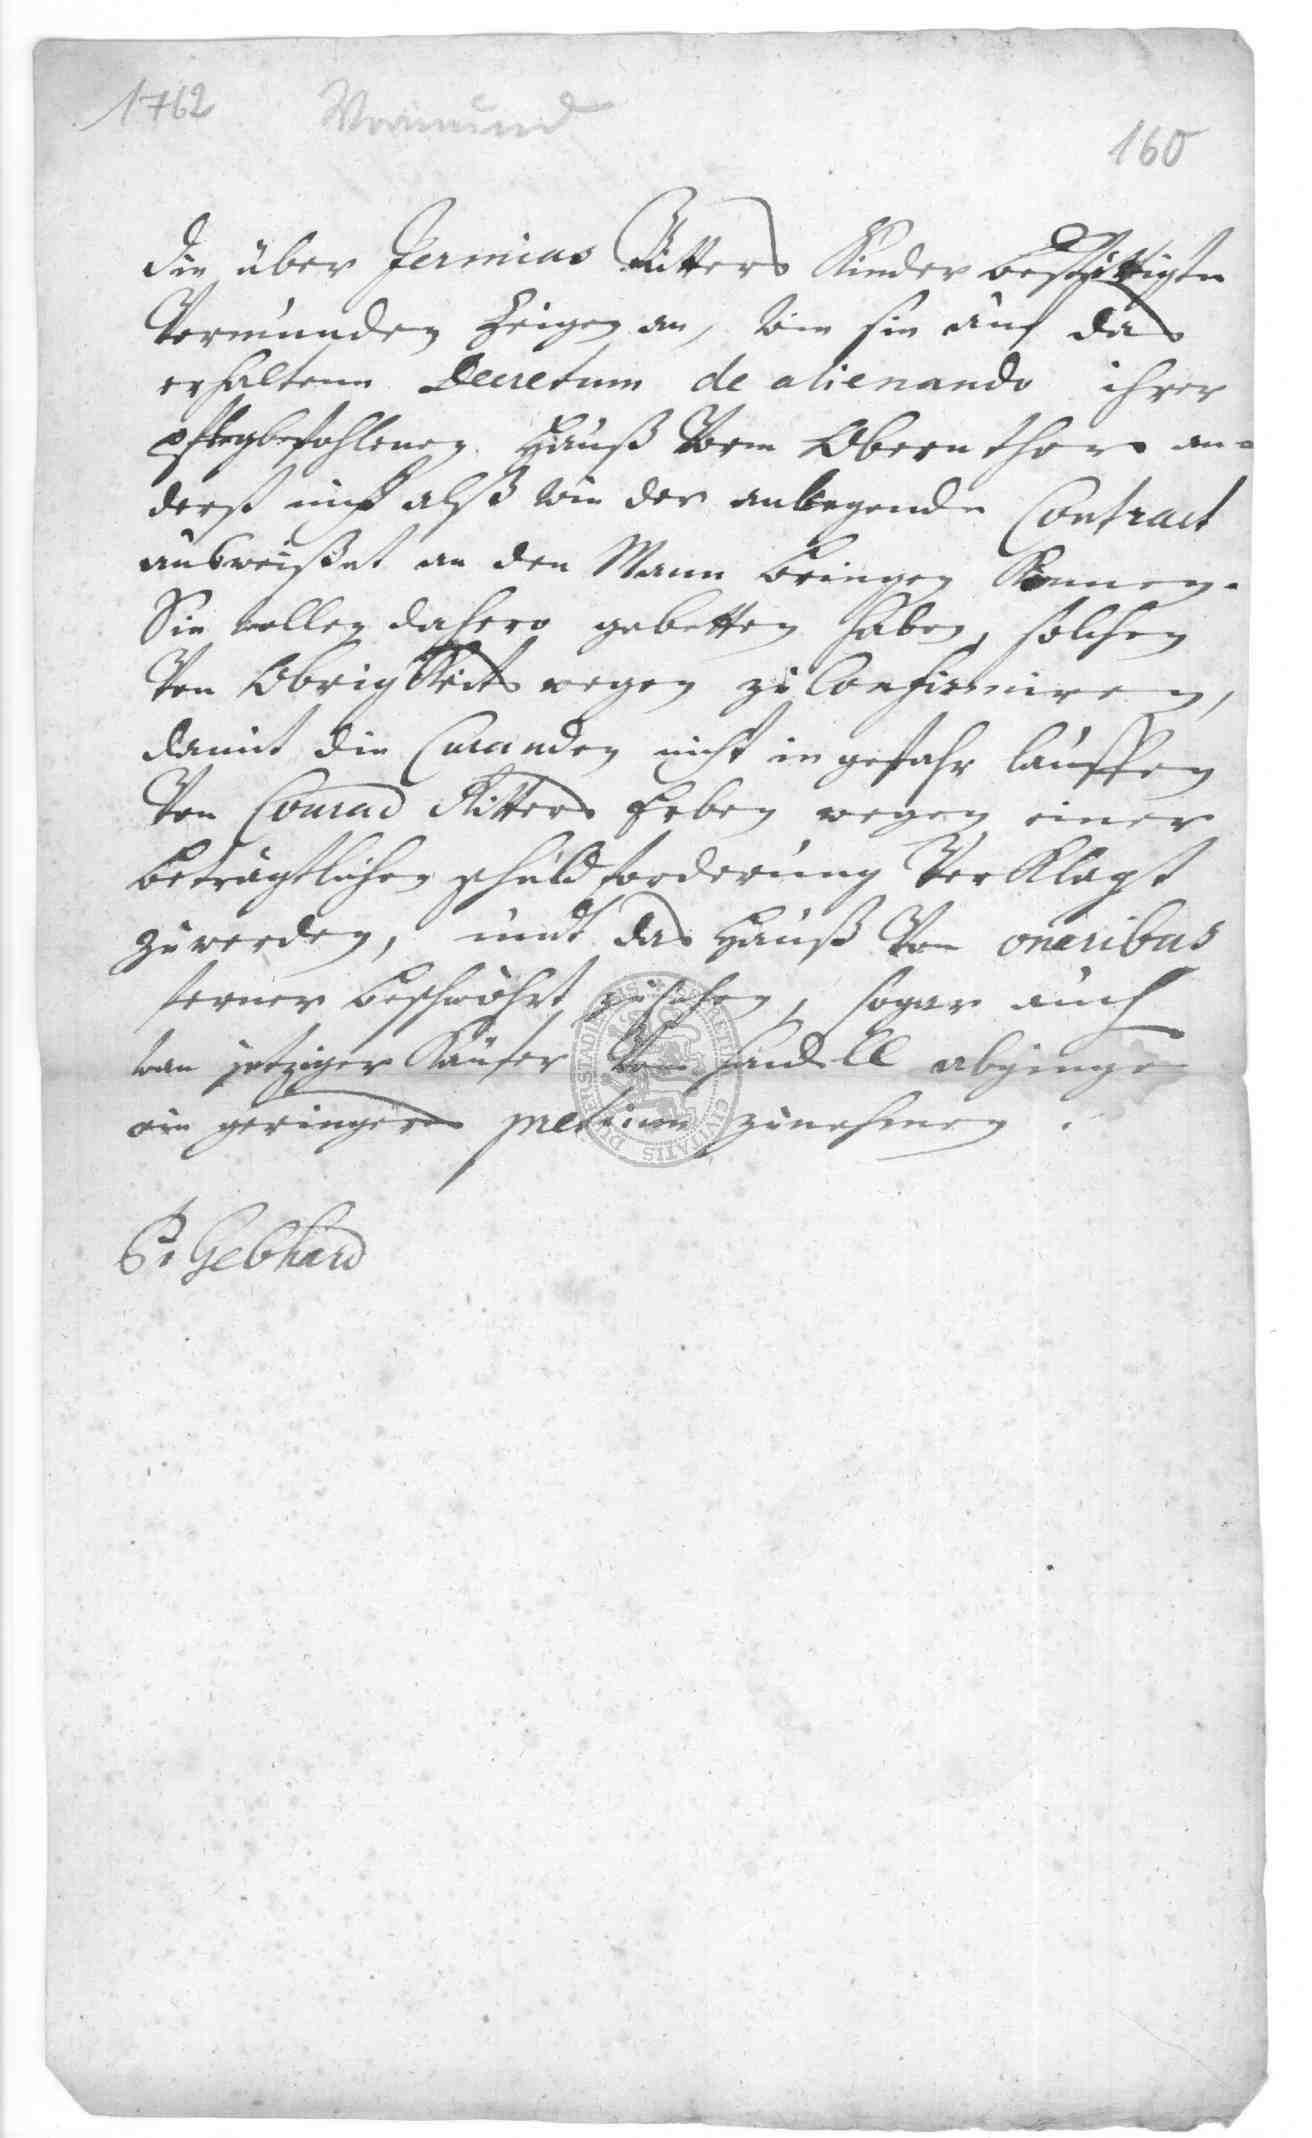 1762 Vormund
160
die über Jermias Ritters Kinder bestättigte
Vormunden Zeigen an, wie sie auf das
erhaltene Decretum de alienando ihrer
pflegbefohlenen Hauß vorm Obernthor an-
derst nicht alß wie der anliegende Contract
ausweißet an den Mann bringen können.
Sie wollen dahero gebetten haben, solchen
von Obrigkeits wegen zu Confirmiren,
damit die Curanden nicht in gefahr lauffen
von Conrad Ritters Erben wegen einer
beträgtlichen schuldforderung verklagt
zuwerden, undt das Hauß von oneribus
ferner beschwöhrt zusehen, sogar auch
wan jetziger Käufer vom handell abginge
ein geringeres pretium zunehmen.
Gebhard
SIGILLUM CIVITATIS DUDERSTADIENSIS